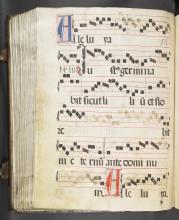 Alle lu ya
Ju stꝰ germina
bit sicut li liū et flo
re bit
in e ternū ante domi nu
m Alle lu